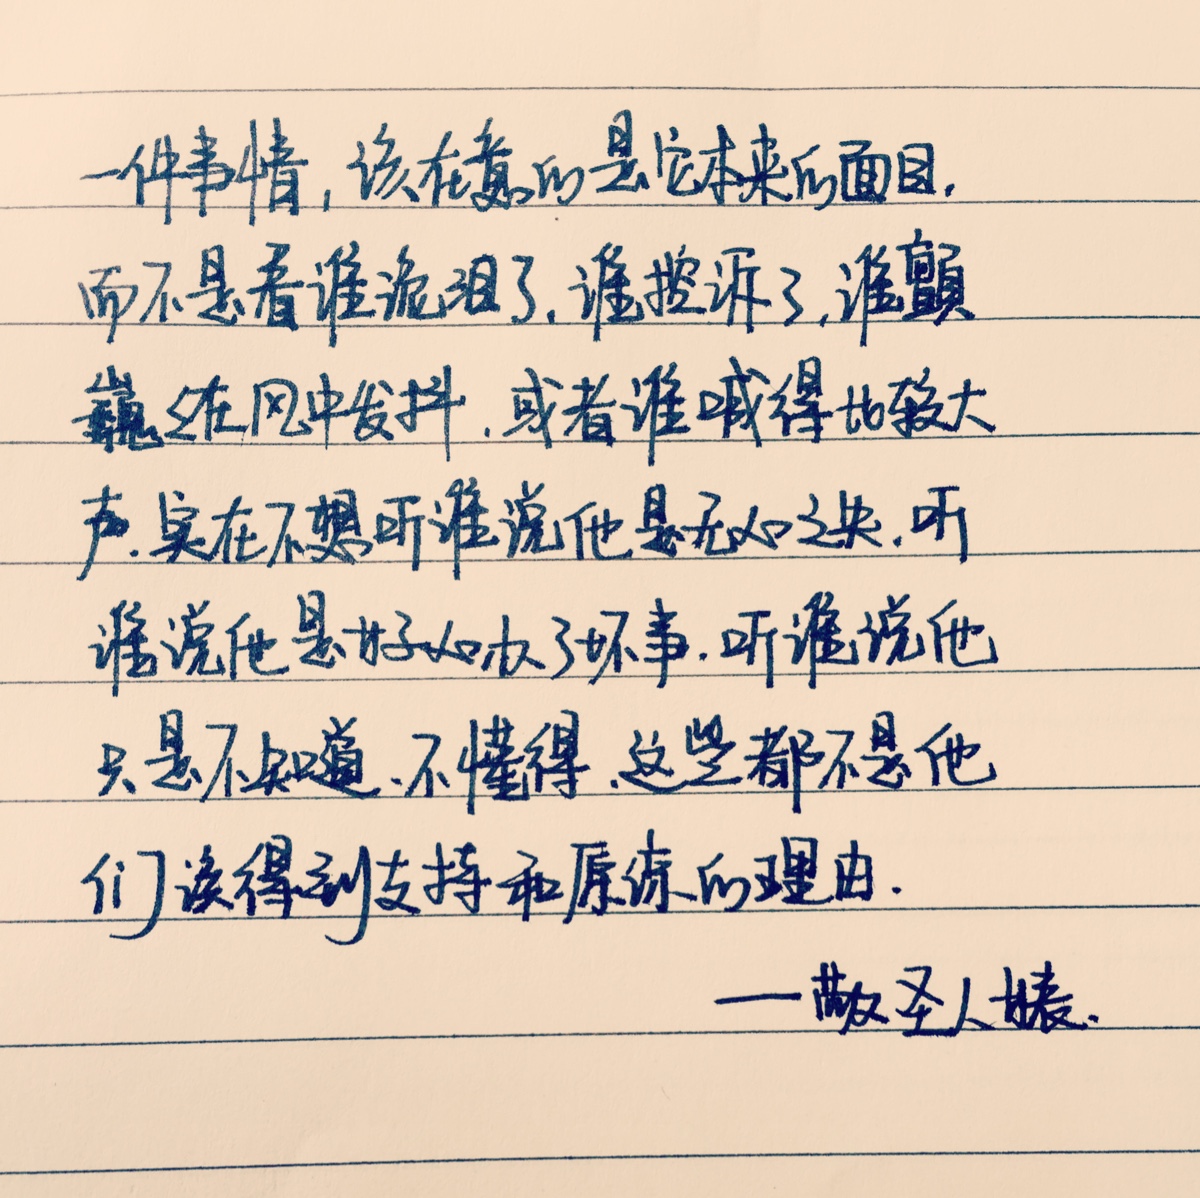 一件事情，该在意的是它本来的面目，
而不是看谁流泪了，谁控诉了，谁颤
巍々在风中发抖，或者谁喊得比较大
声。实在不想听谁说他是无心之失，听
谁说他是好心办了坏事，听谁说他
只是不知道、不懂得，这些都不是他
们该得到支持和原谅的理由。
——敬圣人婊.